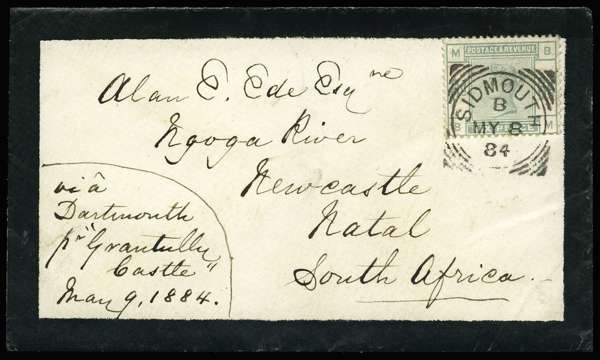 Alan E. Ede Esqre
Ngoga River
Newcastle
Natal
South Africa.
viâ
Dartmouth
pr "Grantully
Castle"
May 9, 1884.
M B
POSTAGE & REVENUE
B M
SIDMOUTH
B
MY 8
84